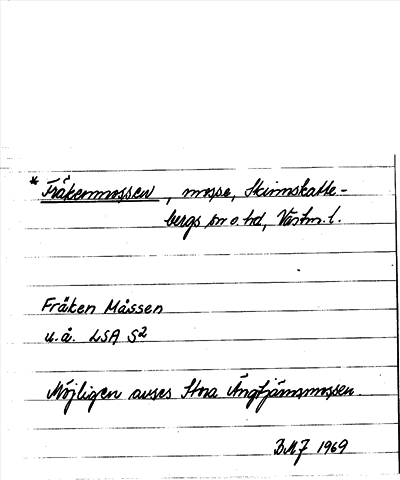 * Fräkenmossen, mosse, Skinnskatte-
bergs sn o. hd, Västm. l.
Fräken Måssen
u.å. LSA S2
Möjligen avses Stora Ängtjärnsmossen.
BMJ 1969